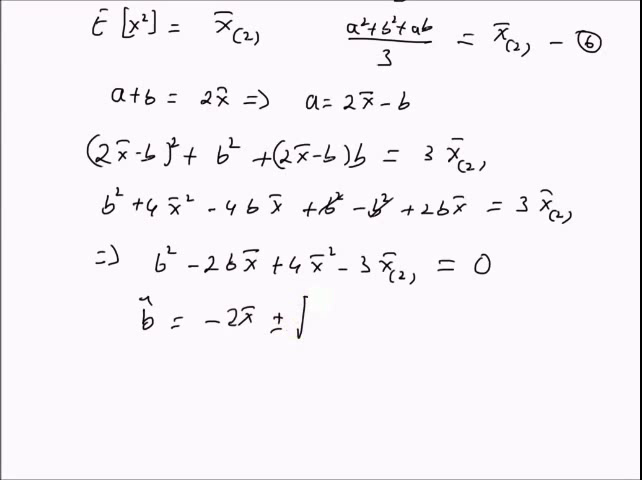 E[x²] = x̄₍₂₎    (a²+b²+ab)/3 = x̄₍₂₎ — ⑥
a+b = 2x̄ => a = 2x̄ - b
(2x̄-b)² + b² + (2x̄-b)b = 3 x̄₍₂₎
b² + 4x̄² - 4bx̄ + b² - b² + 2bx̄ = 3 x̄₍₂₎
=> b² - 2bx̄ + 4x̄² - 3x̄₍₂₎ = 0
b̂ = -2x̄ ± √